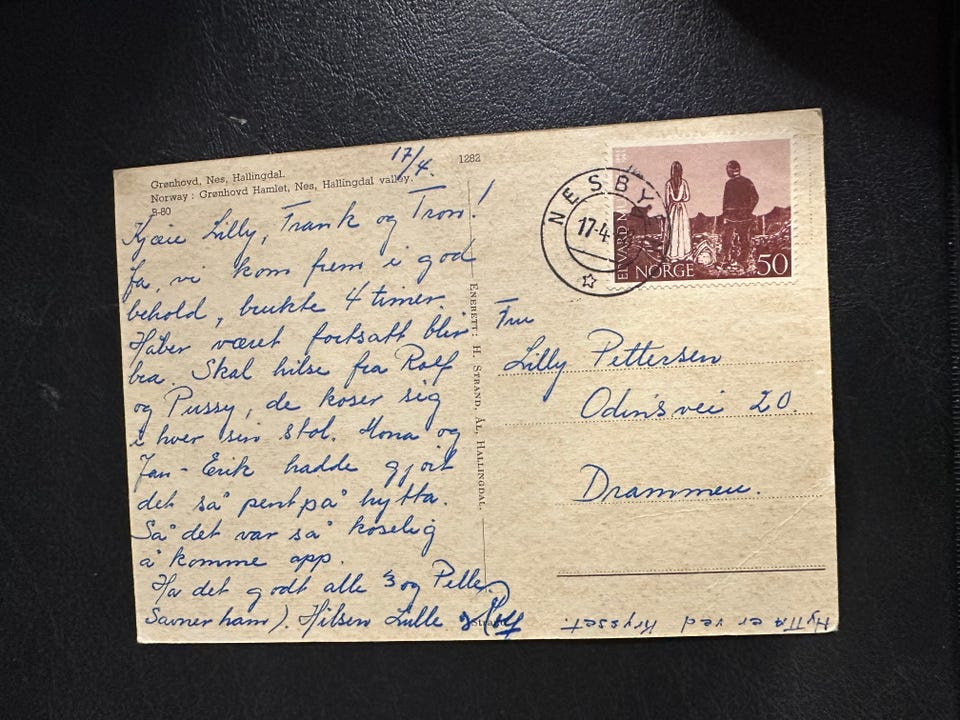 17/4.
1282
Grønhovd, Nes, Hallingdal.
Norway: Grønhovd Hamlet, Nes, Hallingdal valley.
B-80
Kjære Lilly, Frank og Tron!
Ja, vi kom frem i god
behold, brukte 4 timer.
Håber været fortsatt blir
bra. Skal hilse fra Rolf
og Pussy, de koser sig
i hver sin stol. Mona og
Jan-Erik hadde gjort
det så pent på hytta.
Så det var så koselig
å komme opp.
Ha det godt alle 3 og Pelle
Savner ham). Hilsen Lulle og Rolf
ENERETT: H. STRAND, ÅL, HALLINGDAL.
NESBY
17-4
EDVARD
NORGE
50
Fru
Lilly Pettersen
Odinsvei 20.
Drammen.
Hytta er ved Krysset.